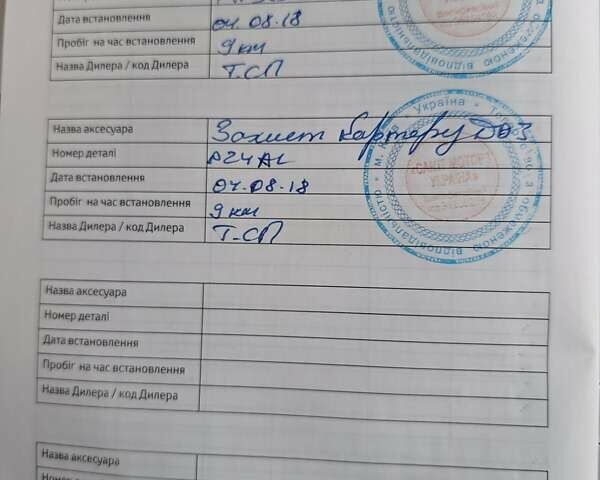 Дата встановлення 04.08.18
Пробіг на час встановлення 9 км
Назва Дилера / код Дилера Т.СП
Назва аксесуара Захист картеру ДВЗ
Номер деталі
Дата встановлення 04.08.18
Пробіг на час встановлення 9 км
Назва Дилера / код Дилера Т-СП
Україна
УКРАЇНА»
відповідальністю
Назва аксесуара
Номер деталі
Дата встановлення
Пробіг на час встановлення
Назва Дилера / код Дилера
Назва аксесуара